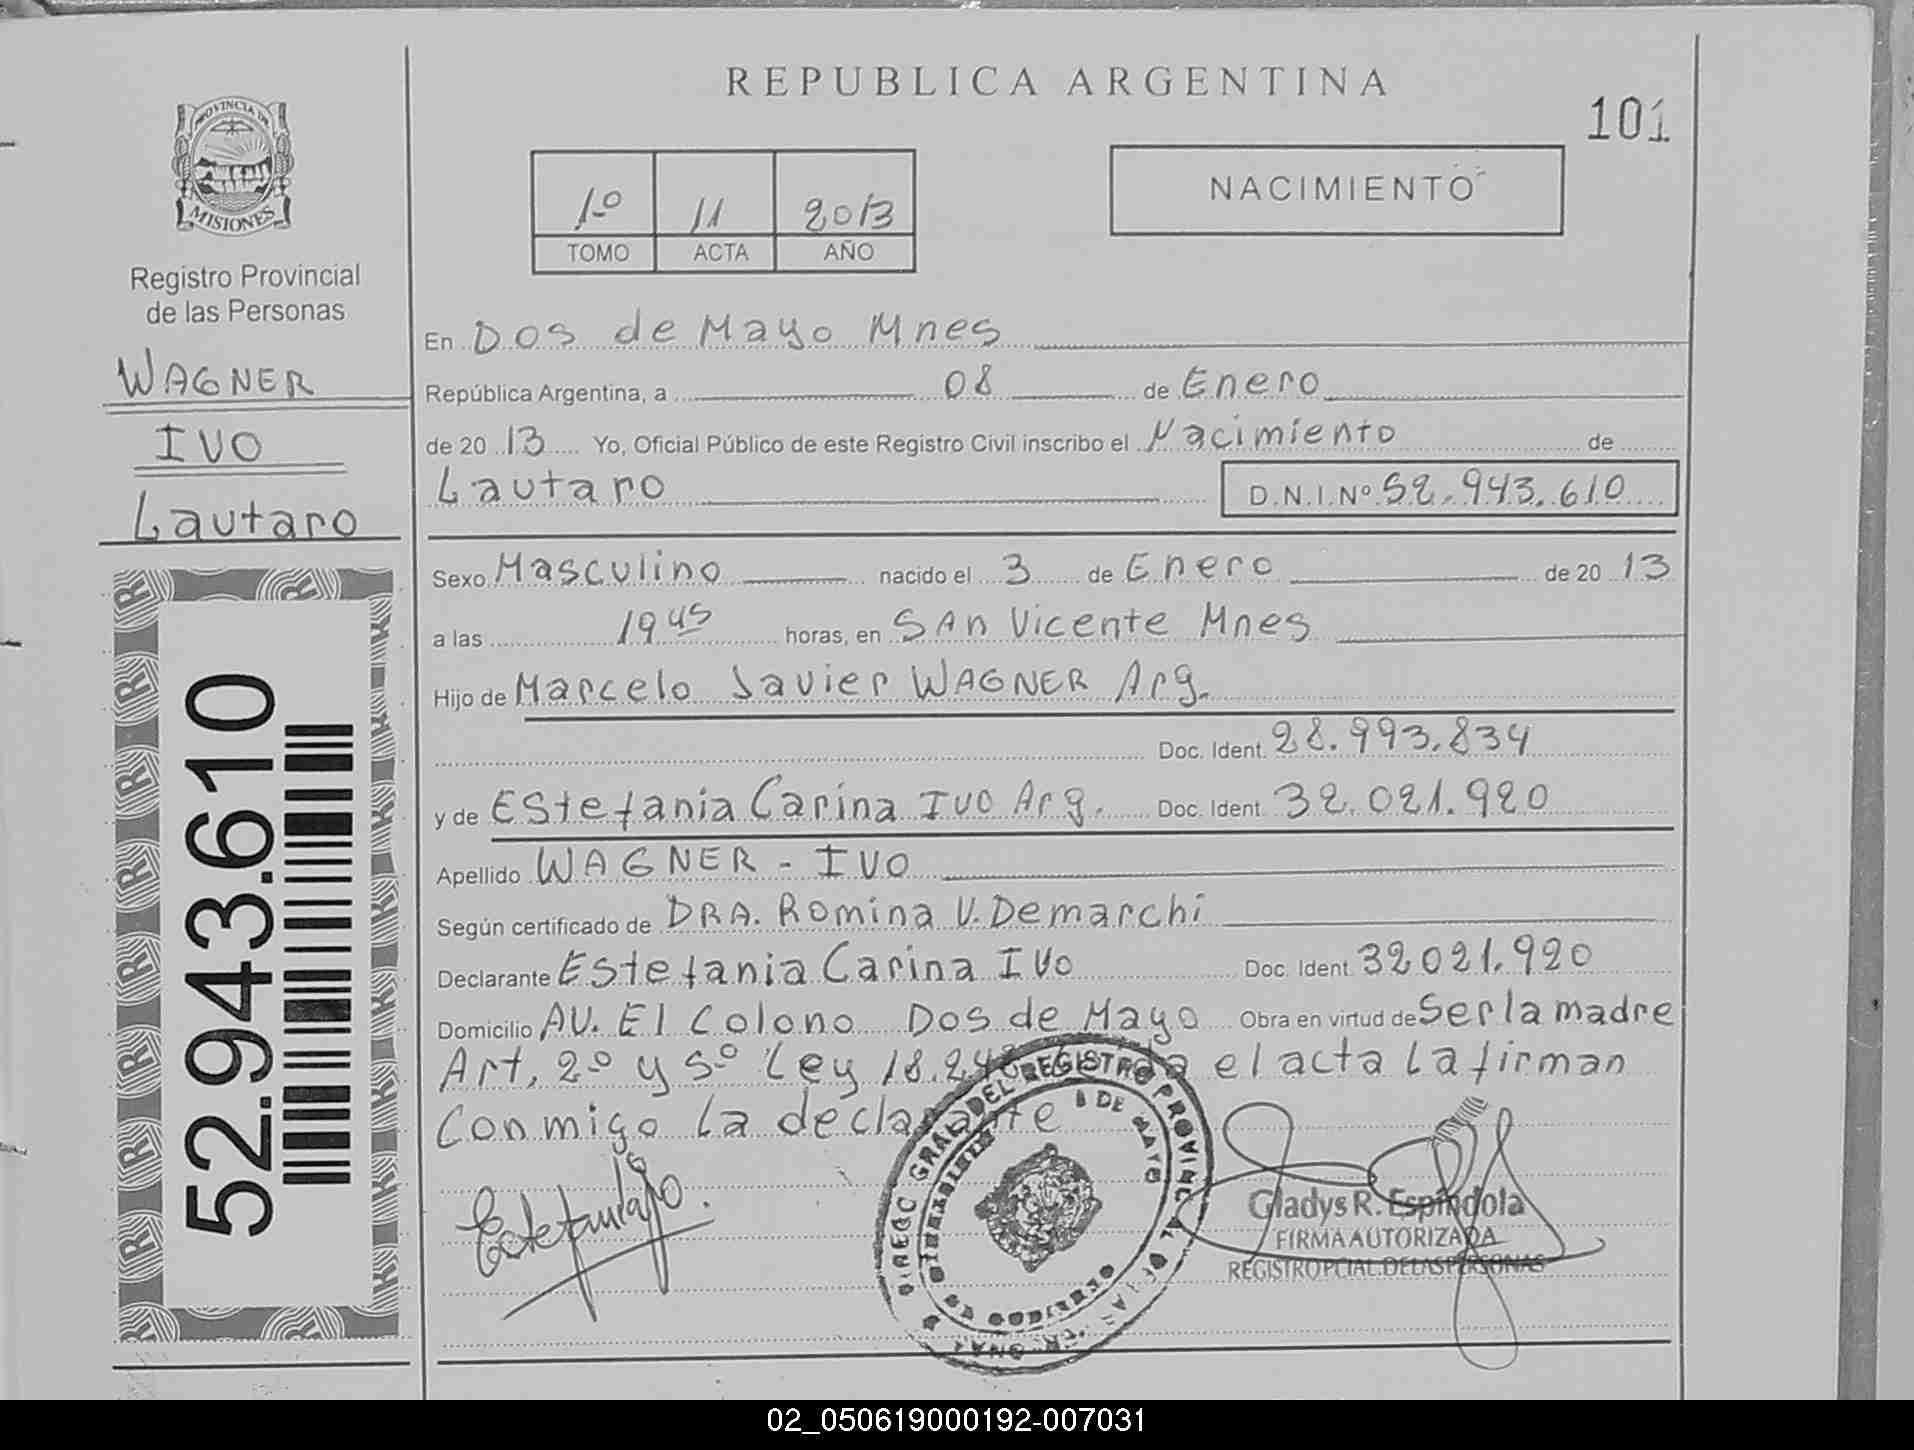 REPUBLICA ARGENTINA
101
PROVINCIA DE
MISIONES
Registro Provincial
de las Personas
WAGNER
IVO
Lautaro
52.943.610
1º 11 2013
TOMO ACTA AÑO
NACIMIENTO
En Dos de Mayo Mnes
República Argentina, a 08 de Enero
de 20 13 Yo, Oficial Público de este Registro Civil inscribo el Nacimiento de
Lautaro D.N.I.Nº 52.943.610
Sexo Masculino nacido el 3 de Enero de 20 13
a las 19 45 horas, en SAn Vicente Mnes
Hijo de Marcelo Javier WAGNER Arg.
Doc. Ident. 28.993.834
y de Estefania Carina IVO Arg. Doc. Ident. 32.021.920
Apellido WAGNER - IVO
Según certificado de DRA. Romina V. Demarchi
Declarante Estefania Carina IVO Doc. Ident. 32021.920
Domicilio AV. El Colono Dos de Mayo Obra en virtud de Ser la madre
Art. 2º y 5º Ley 18.248 el acta La firman
Conmigo La declarante
REGISTRO PROVINCIAL DE LAS
DE MAYO
Gladys R. Espíndola
FIRMA AUTORIZADA
REGISTRO PCIAL. DE LAS PERSONAS
02_050619000192-007031